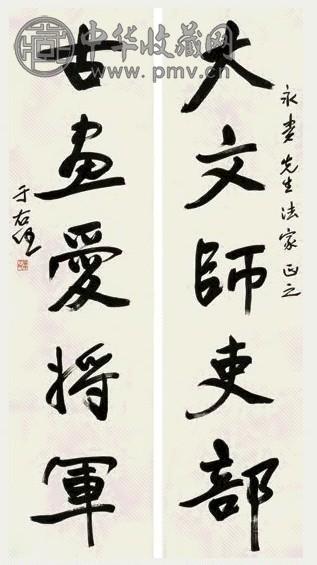 中华收藏网
www.pmv.cn
永 先生法家正之
大文師吏部
古畫愛將軍
于右任